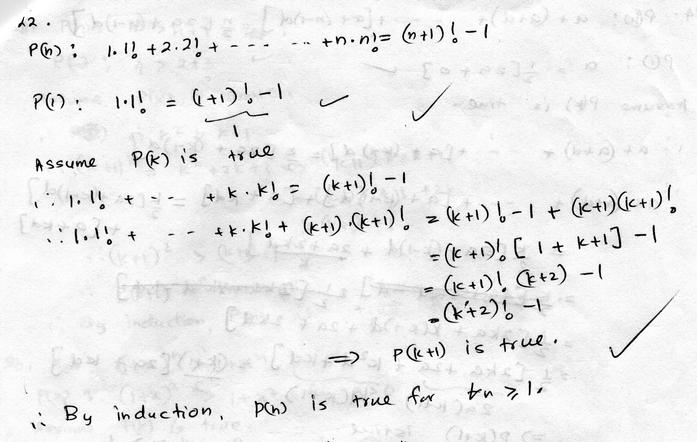 22.
P(n): 1.1! + 2.2! + - - - - - - + n.n! = (n+1)! - 1
P(1): 1.1! = (1+1)! - 1 ✓ ✓
1
Assume P(k) is true
∴ 1.1! + - - + k.k! = (k+1)! - 1
∴ 1.1! + - - + k.k! + (k+1).(k+1)! = (k+1)! - 1 + (k+1)(k+1)!
= (k+1)! [1 + k+1] - 1
= (k+1)! (k+2) - 1
= (k+2)! - 1
⟹ P(k+1) is true. ✓
∴ By induction, P(n) is true for ∀n ≥ 1.